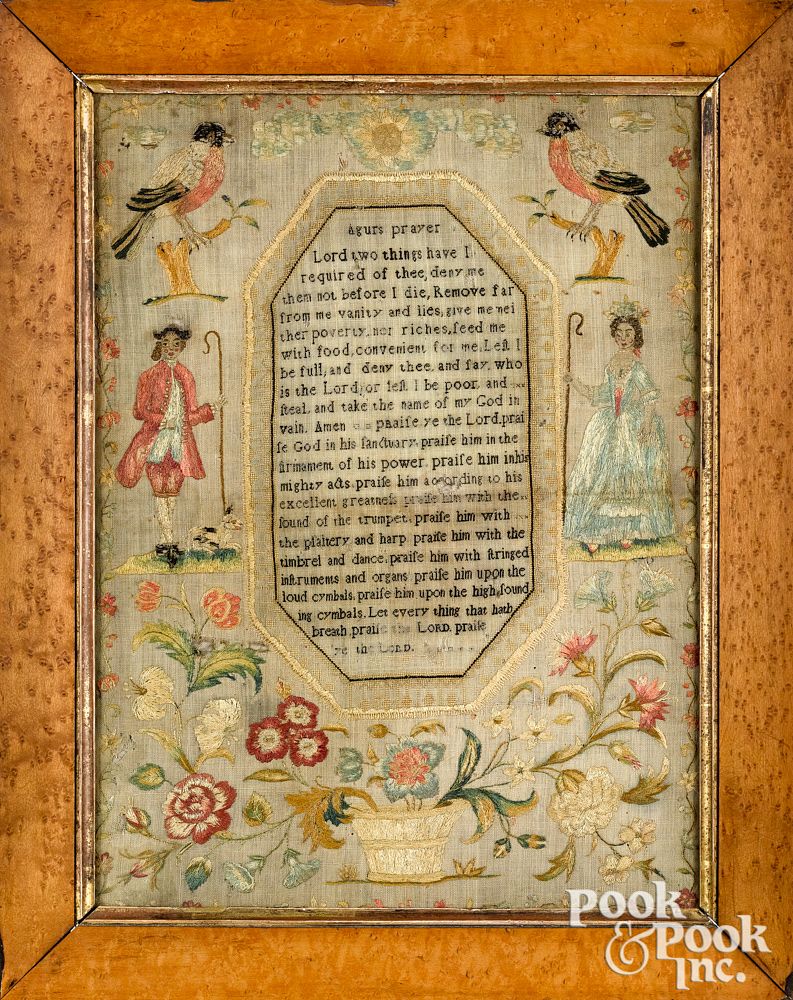 Agurs prayer
Lord two things have I
required of thee, deny me
them not before I die, Remove far
from me vanity and lies, give me nei
ther poverty, nor riches, feed me
with food, convenient for me, Leſt I
be full, and deny thee, and ſay, who
is the Lord, or leſt I be poor, and
ſteal, and take the name of my God in
vain. Amen praiſe ye the Lord. prai
ſe God in his ſanctuary, praiſe him in the
firmament of his power. praiſe him in his
mighty acts. praiſe him according to his
excellent greatneſs praiſe him with the
ſound of the trumpet. praiſe him with
the pſaltery and harp. praiſe him with the
timbrel and dance. praiſe him with ſtringed
inſtruments and organs praiſe him upon the
loud cymbals. praiſe him upon the high, ſound
ing cymbals. Let every thing that hath
breath, praiſe the LORD. praiſe
ye the LORD.
POOK
& POOK
Inc.